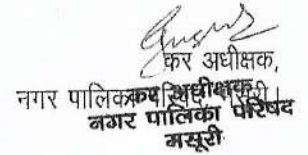 कर अधीक्षक,
नगर पालिका परिषद मसूरी।
कर अधीक्षक
नगर पालिका परिषद
मसूरी